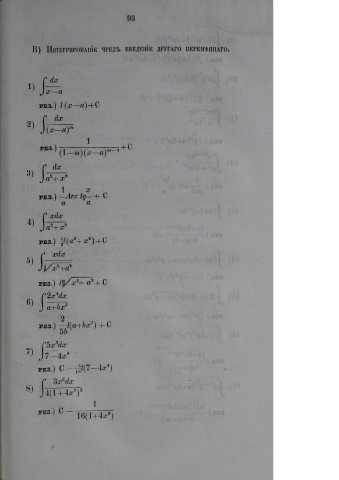 93
В) Интегрированіе чрезъ введеніе другаго перемѣннаго.
1) ∫ dx/(x—a)
рез.) l(x—a)+C
2) ∫ dx/(x—a)^m
рез.) 1/((1—m)(x—a)^(m—1)) + C
3) ∫ dx/(a²+x²)
рез.) 1/a Arc tg x/a + C
4) ∫ xdx/(a²+x²)
рез.) ½l(a²+x²)+C
5)
рез.)
6) ∫ 2x⁴dx/(a+bx⁵)
рез.) 2/5b l(a+bx⁵) + C
7) ∫ 5x³dx/(7—4x⁴)
рез.) C — l(7—4x⁴)
8)
рез.) C —